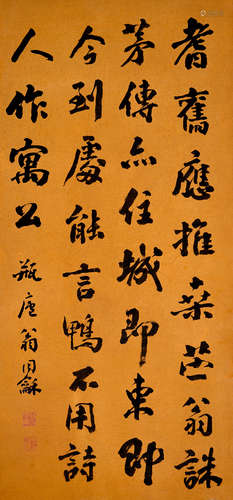 耆舊應推桑苧翁誅
茅傳点住城即東即
今到處能言鴨不用詩
人作寓公
瓶廬翁同龢